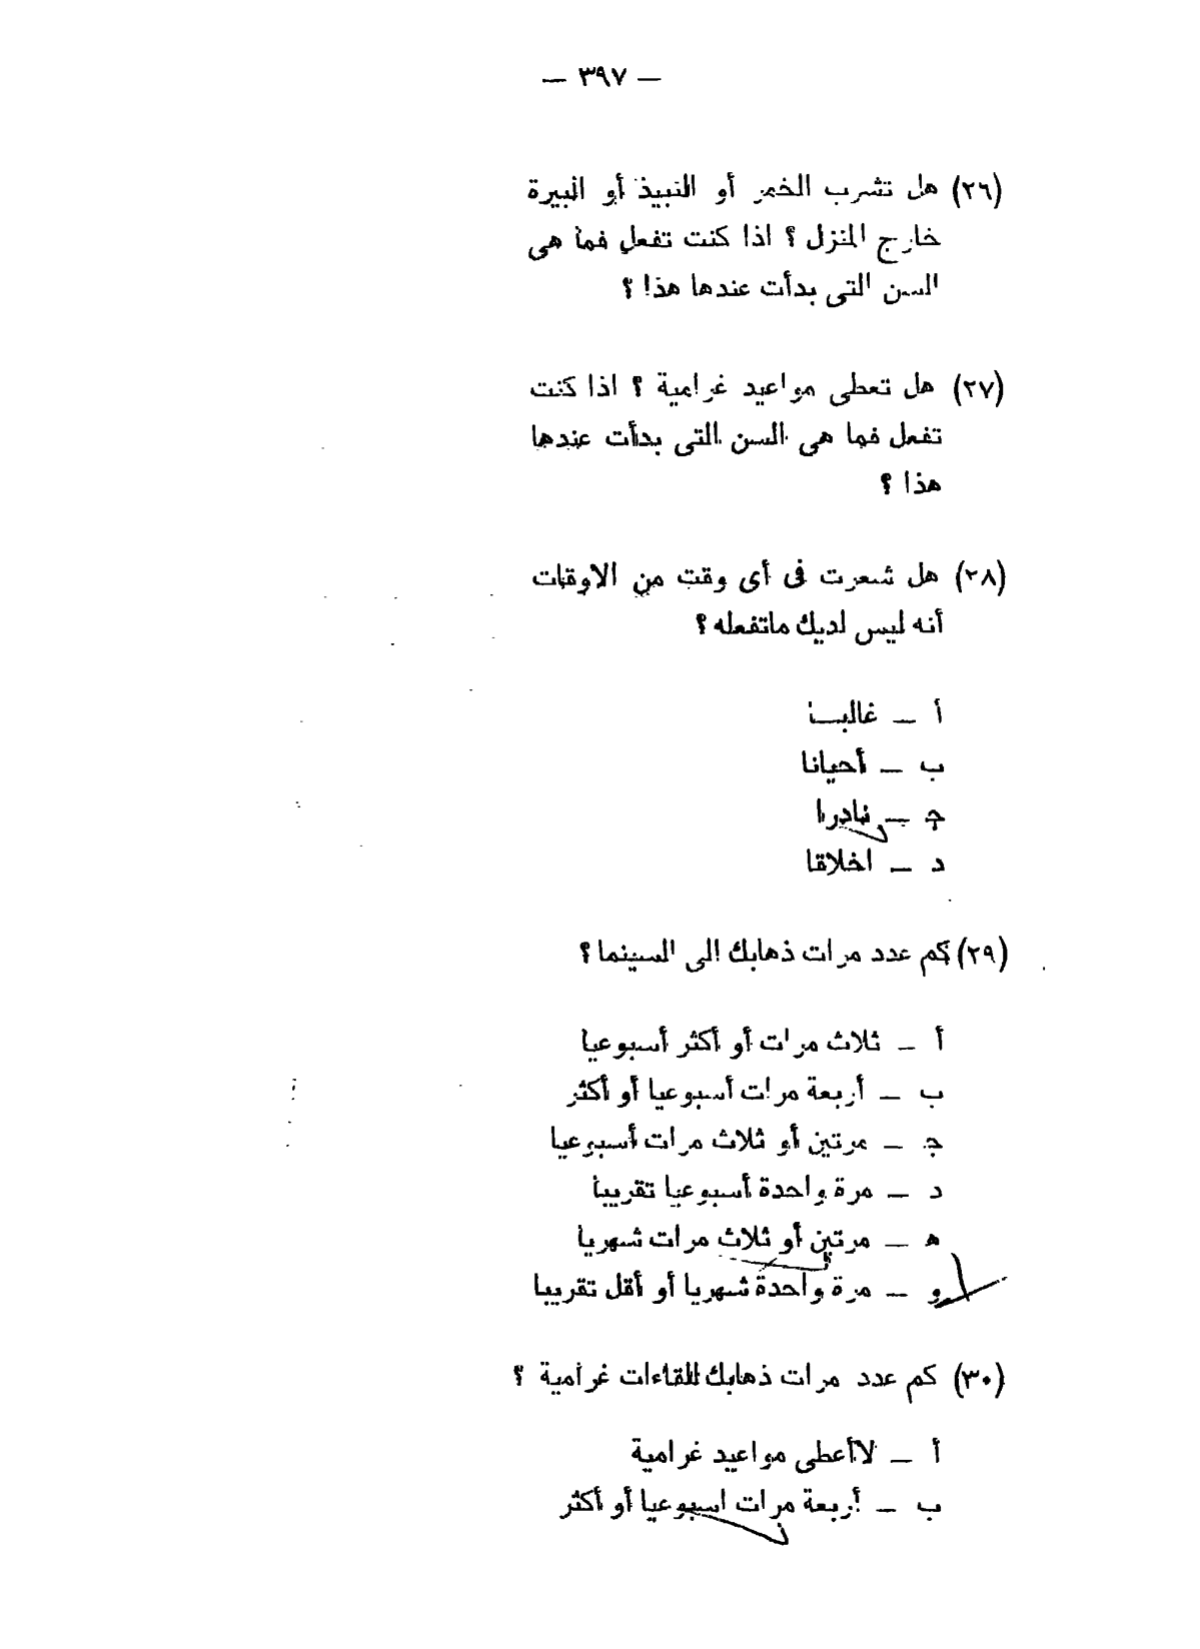 — ٣٩٧ —
(٢٦) هل تشرب الخمر أو النبيذ أو البيرة
خارج المنزل ؟ اذا كنت تفعل فما هى
السن التى بدأت عندها هذا ؟
(٢٧) هل تعطى مواعيد غرامية ؟ اذا كنت
تفعل فما هى السن التى بدأت عندها
هذا ؟
(٢٨) هل شعرت فى أى وقت من الاوقات
أنه ليس لديك ماتفعله ؟
أ — غالبا
ب — أحيانا
ج — نادرا
د — اخلاقا
(٢٩) كم عدد مرات ذهابك الى السينما ؟
أ — ثلاث مرات أو أكثر أسبوعيا
ب — أربعة مرات أسبوعيا أو أكثر
ج — مرتين أو ثلاث مرات أسبوعيا
د — مرة واحدة أسبوعيا تقريبا
ه — مرتين أو ثلاث مرات شهريا
و — مرة واحدة شهريا أو أقل تقريبا
(٣٠) كم عدد مرات ذهابك للقاءات غرامية ؟
أ — لاأعطى مواعيد غرامية
ب — أربعة مرات اسبوعيا أو أكثر